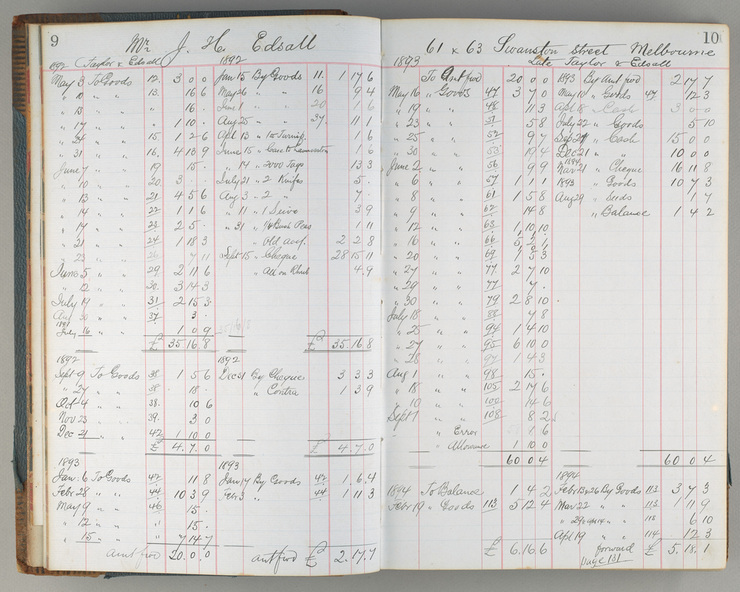 9
Mr J. H. Edsall
1892 Taylor & Edsall 1892
May 3 To Goods 12. 3 0 0 Jan 15 By Goods 11. 1 17 6
" 11 " " 13. 16 6 May 26 " " 16 9 4
" 13 " " " 16. June 1 " " 20 1 6
" 17 " " " 1 10. Aug 25 " " 37 11 1
" 24 " " 15. 1 2 6 April 13 " 1 6
" 31 " " 16. 4 13 9 June 15 "
June 7 " " 19 15. " 14 " 2000 Tags 13 3
" 10 " " 20. 3 July 21 " 2 Knifes 5.
" 13 " " 21. 4 5 6 Aug 3 " 2 " 7.
" 14 " " 22 1 1 6 " 11 " 1 Sieve 3 9
" 17 " " 23 2 5. " 31 " Peas 1 1
" 21 " " 24 1 18 3 " " Old acct. 2 2 8
" 23 " " 26 7 11 Sept 15 " Cheque 28 15 11
5 " " 29 2 11 6 " 4 9
" 12 " " 30. 3 14 3
July 14 " " 31 2 15 3
Aug 30 " " 37. 3.
16 " " 1 0 9
£ 35.16.8 £ 35.16.8
1892 1892
Sept 9 To Goods 38. 1 5 6 Dec 21 By Cheque 3 3 3
" 27 " " 38. 18. " " Contra 1 3 9
Oct 4 " " 38. 10 6
Nov 23 " " 39. 3 0
Dec 21 " " 42. 1 10 0
£ 4.7.0 £ 4.7.0
1893 1893
Jan. 6 To Goods 42. 11 8 Jan 14 By Goods 42. 1 6 4
Febr 28 " " 44. 10 3 9 Feb 3 " 44 1 11 3
May 9 " " 46. 15.
" 12 " " " 15.
" 15 " " 7 14 7
amt fwd 20.0.0 amt fwd £ 2.17.7
10
61 & 63 Swanston Street Melbourne
1893 Late Taylor & Edsall
To Amt fwd 20 0 0 1893 By Amt fwd 2 17 7
May 16 " Goods 47 3 7 0 May 18 " Goods 47 12 3
" 19 " " 48 11 3 April 18 " Cash 3
" 23 " " 51 5 8 July 22 " Goods 5 10
" 25 " " 52 9 7 Sept 29 " Cash 15 0 0
" 30 " " 53 19 4 Dec 21 " " 10 0 0
June 2 " " 56 9 9 Nov 21 " Cheque 16 11 8
" 6 " " 57 1 1 1 1893 " Goods 10 7 3
" 8 " " 61 1 5 8 Aug 29 " Seeds 1 7
" 9 " " 62 14 8 " Balance 1 4 2
" 12 " " 63 1 10 10
" 16 " " 66 5 2 1
" 20 " " 69 1 5 3
" 27 " " 77 2 7 10
" 29 " " 77 7.
" 30 " " 79 2 8 10
July 18 " " 88 4 8
" 25 " " 94 1 4 10
" 27 " " 95 6 10 0
" 28 " " 97 1 4 3
Aug 1 " " 98 15.
" 18 " " 105 2 17 6
" 10 " " 100 14 6
Sept 7 " " 108 8 2
" Error 1 6
" Allowance 1 10 0
60 0 4 60 0 4
1894
1894 To Balance 1 4 2 Febr 13 & 26 By Goods 113 3 7 3
Febr 19 " Goods 113 5 12 4 Mar 22 " " 113 1 11 9
" 29 " " 113 6 10
April 19 " " 114 12 3
£ 6.16.6 forward £ 5.18.1
page 131